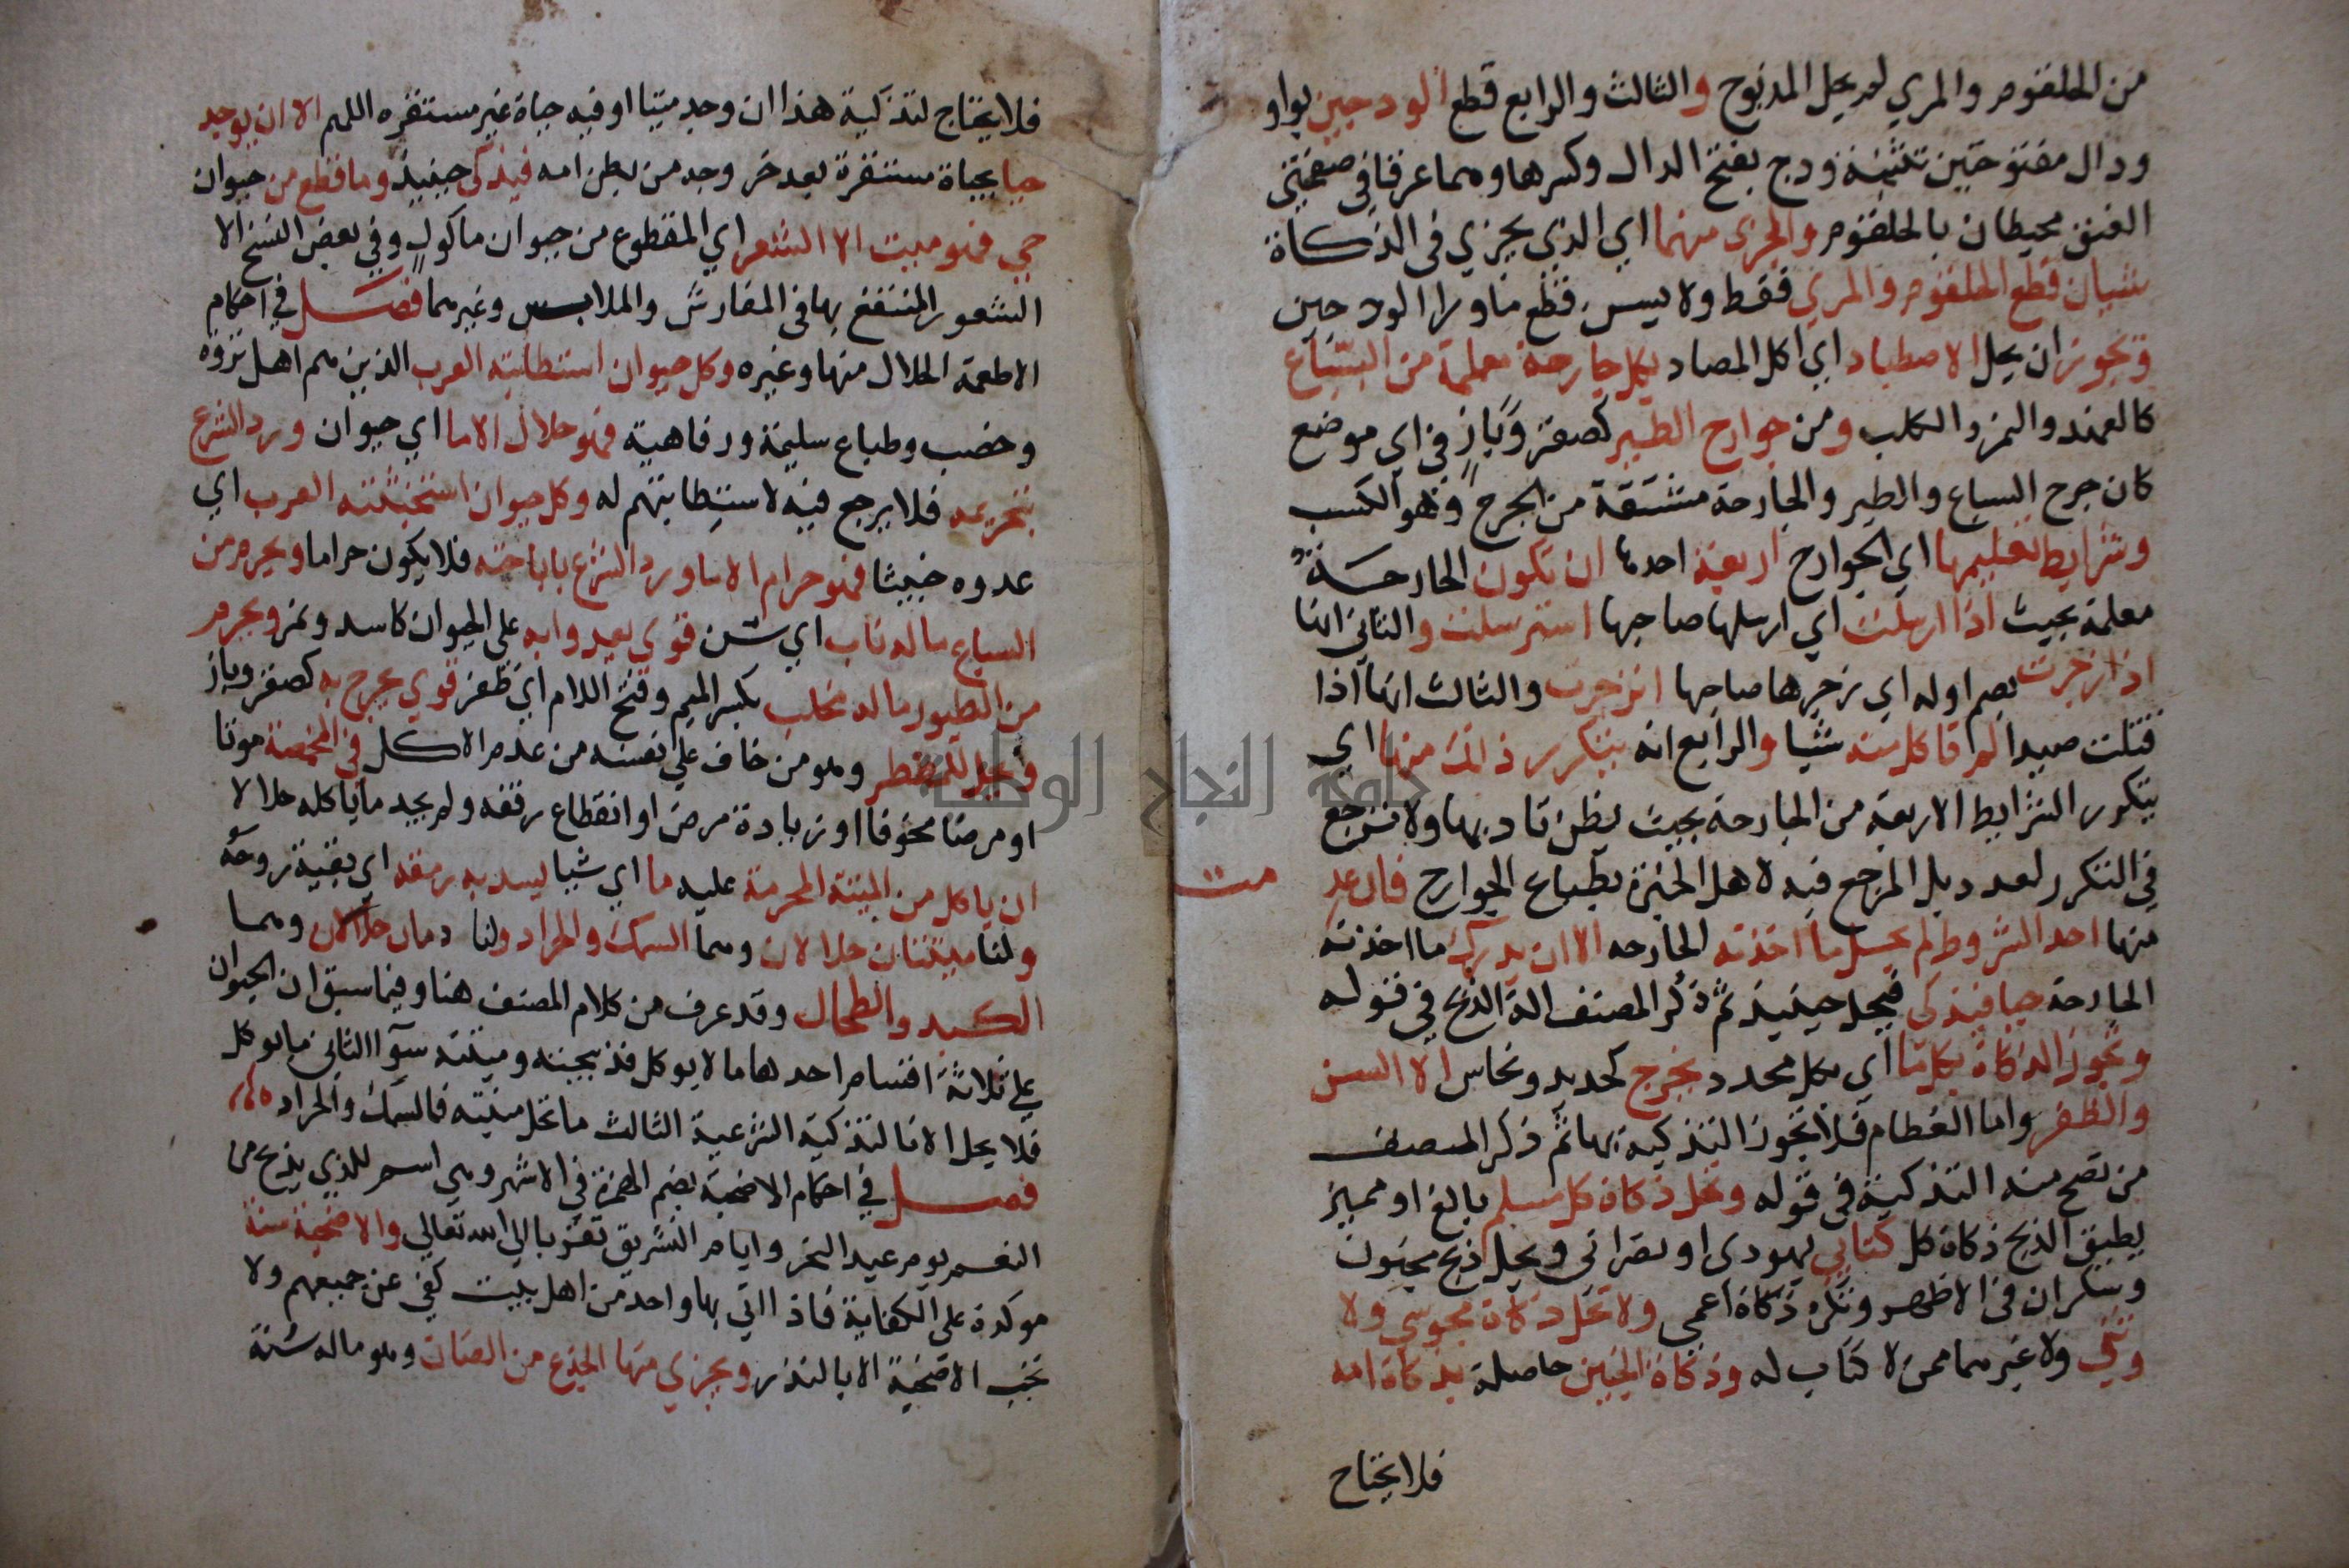 من الحلقوم والمري لم يحل المذبوح والثالث والرابع قطع الودجين بواو
ودال مفتوحتين تثنية ودج بفتح الدال وكسرها وهما عرقان في صفحتي
العنق محيطان بالحلقوم والمجزى منهما اي الذي يجزي في الذكاة
شيان قطع الحلقوم والمري فقط ولا يسن قطع ماورا الودجين
وتجوز ان يحل الاصطياد اي اكل المصاد بكل جارحة معلمة من السباع
كالفهد والنمر والكلب ومن جوارح الطير كصقر وباز في اي موضع
كان جرح السباع والطير والجارحة مشتقة من الجرح وهو الكسب
وشرايط تعليمها اي الجوارح اربعة احدها ان تكون الجارحة
معلمة بحيث اذا ارسلت اي ارسلها صاحبها استرسلت والثاني انها
اذا زجرت بضم اوله اي زجرها صاحبها انزجرت والثالث انها اذا
قتلت صيدا لم تاكل منه شيا والرابع انه يتكرر ذلك منها اي
يتكرر الشرايط الاربعة من الجارحة بحيث يظن تادبها ولا يرجع
في التكرر لعدد بل المرجع فيه لاهل الخبرة بطباع الجوارح فان عدمت
منها احد الشروط لم يحل ما اخذته الجارحه الا ان يدرك ما اخذته
الجارحة حيا فيذكى فيحل حينيذ ثم ذكر المصنف الة الذبح في قوله
وتجوز الذكاة بكل ما اي بكل محدد يجرح كحديد ونحاس الا السن
والظفر واما العظام فلا تجوز التذكية بها ثم ذكر المصنف
من تصح منه التذكية في قوله وتحل ذكاة كل مسلم بالغ او مميز
يطيق الذبح ذكاة كل كتابي يهودى او نصراني ويحل ذبح مجنون
وسكران في الاظهر وتكره ذكاة اعمى ولا تحل ذكاة مجوسي ولا
وثني ولا غيرهما ممن لا كتاب له وذكاة الجنين حاصلة بذكاة امه
فلا يحتاج
فلا يحتاج لتذكية هذا ان وجد ميتا او فيه حياة غير مستقره اللهم الا ان يوجد
حيا بحياة مستقرة بعد خروجه من بطن امه فيذكى حينيذ وما قطع من حيوان
حي فهو ميت الا الشعر اي المقطوع من حيوان ماكول وفي بعض النسخ الا
الشعور المنتفع بها في المفارش والملابس وغيرهما فصل في احكام
الاطعمة الحلال منها وغيره وكل حيوان استطابته العرب الذين هم اهل ثروة
وخصب وطباع سليمة ورفاهية فهو حلال الا ما اي حيوان ورد الشرع
بتحريمه فلا يرجع فيه لاستطابتهم له وكل حيوان استخبثته العرب اي
عدوه خبيثا فهو حرام الا ما ورد الشرع باباحته فلا يكون حراما ويحرم من
السباع ما له ناب اي سن قوي يعدوا به على الحيوان كاسد ونمر ويحرم
من الطيور ما له مخلب بكسر الميم وفتح اللام اي ظفر قوي يجرح به كصقر وباز
ويحل للمضطر وهو من خاف على نفسه من عدم الاكل في المخمصة موتا
او مرضا مخوفا او زيادة مرض او انقطاع رفقه ولم يجد ما ياكله حلالا
ان ياكل من الميتة المحرمة عليه ما اي شيا ليسد به رمقه اي بقية روحه
ولنا ميتتان حلالان وهما السمك والجراد ولنا دمان حلالان وهما
الكبد والطحال وقد عرف من كلام المصنف هنا وفيما سبق ان الحيوان
على ثلاثة اقسام احدها ما لا يوكل فذبيحته وميتته سوآ الثاني ما يوكل
فلا يحل الا بالتذكية الشرعية الثالث ما تحل ميتته فالسمك والجراد
فصل في احكام الاضحية بضم الهمزة في الاشهر وهي اسم للذي يذبح من
النعم يوم عيد النحر وايام التشريق تقربا الى الله تعالى والاضحية سنة
موكدة على الكفاية فاذا اتي بها واحد من اهل بيت كفى عن جميعهم ولا
تجب الاضحية الا بالنذر ويجزي منها الجذع من الضان وهو ماله سنة
جامعة النجاح الوطنية